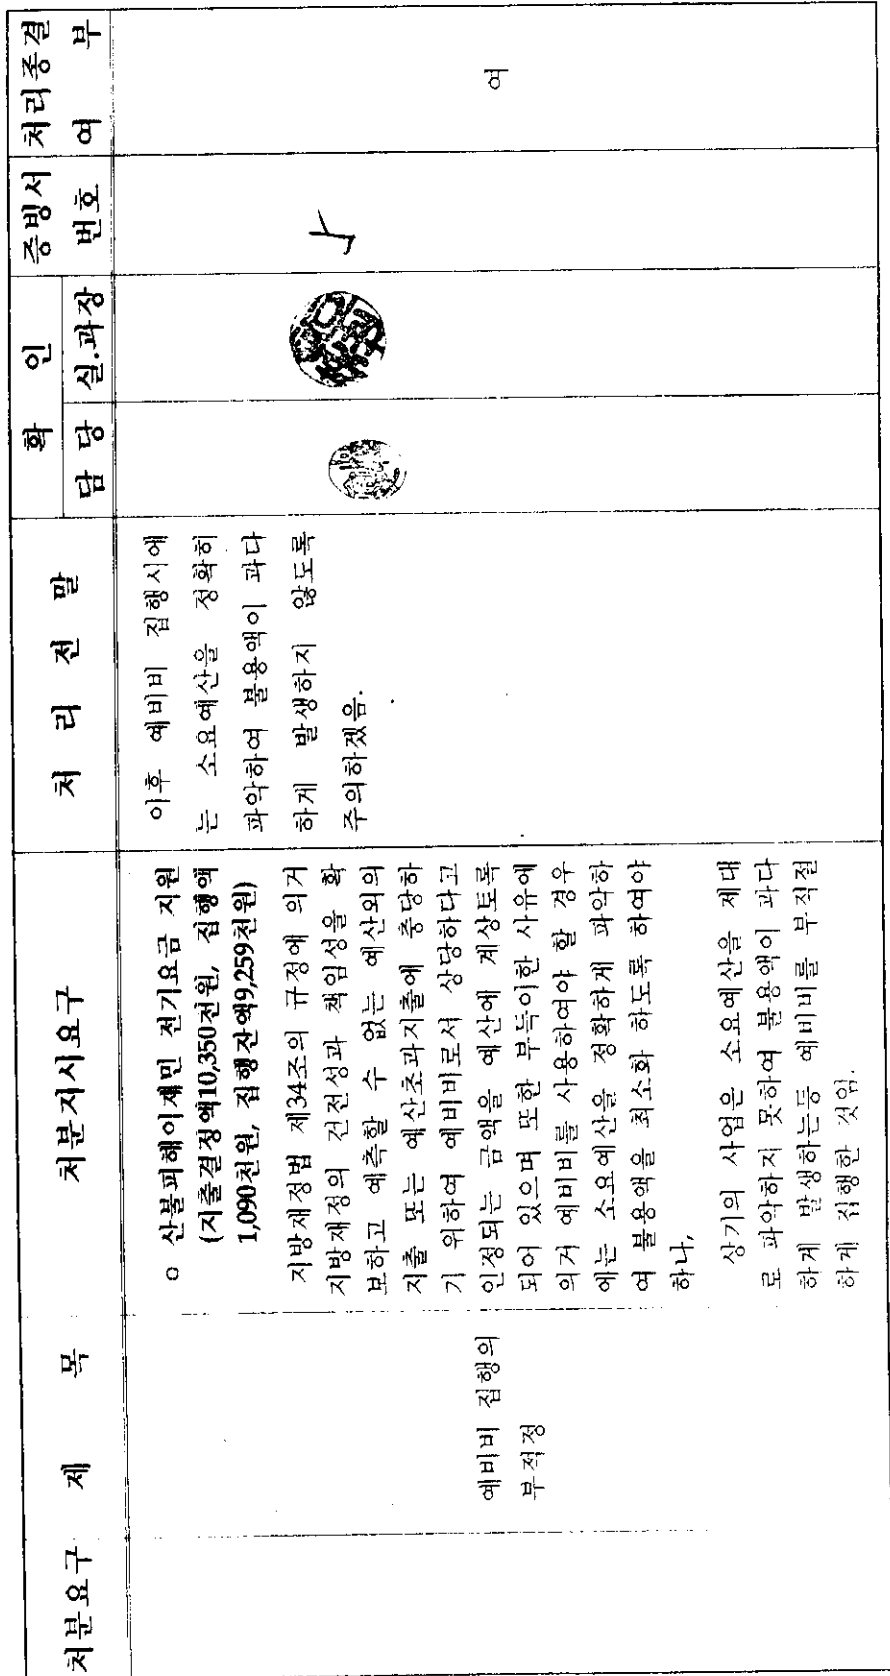 처분요구
제 목
처분지시요구
처 리 전 말
확 인
담 당
실.과장
증빙서
번호
처리종결
여 부
예비비 집행의
부적정
○ 산불피해이재민 전기요금 지원
(지출결정액10,350천원, 집행액
1,090천원, 집행잔액9,259천원)
지방재정법 제34조의 규정에 의거
지방재정의 건전성과 책임성을 확
보하고 예측할 수 없는 예산외의
지출 또는 예산초과지출에 충당하
기 위하여 예비비로서 상당하다고
인정되는 금액을 예산에 계상토록
되어 있으며 또한 부득이한 사유에
의거 예비비를 사용하여야 할 경우
에는 소요예산을 정확하게 파악하
여 불용액을 최소화 하도록 하여야
하나,
상기의 사업은 소요예산을 제대
로 파악하지 못하여 불용액이 과다
하게 발생하는등 예비비를 부적절
하게 집행한 것임.
이후 예비비 집행시에
는 소요예산을 정확히
파악하여 불용액이 과다
하게 발생하지 않도록
주의하겠음.
여